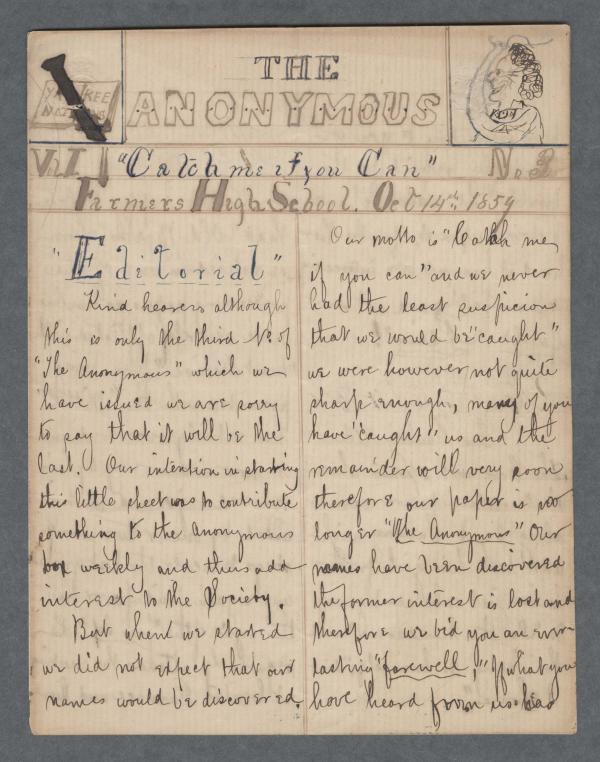 THE
YANKEE
NATIONS
ANONYMOUS
Vol I "Catch me if you Can" No. 3
Farmers High School. Oct 14th 1859
"Editorial"
Kind hearers although
this is only the third No. of
"The Anonymous" which we
have issued we are sorry
to say that it will be the
last. Our intention in starting
this little sheet was to contribute
something to the anonymous
box weekly and thus add
interest to the Society.
But when we started
we did not expect that our
names would be discovered.
Our motto is "Catch me
if you can" and we never
had the least suspicion
that we would be "caught"
we were however not quite
sharp enough, many of you
have "caught" us and the
remainder will very soon
therefore our paper is no
longer "The Anonymous" Our
names have been discovered
the former interest is lost and
therefore we bid you an ever-
lasting "farewell," If what you
have heard from us has